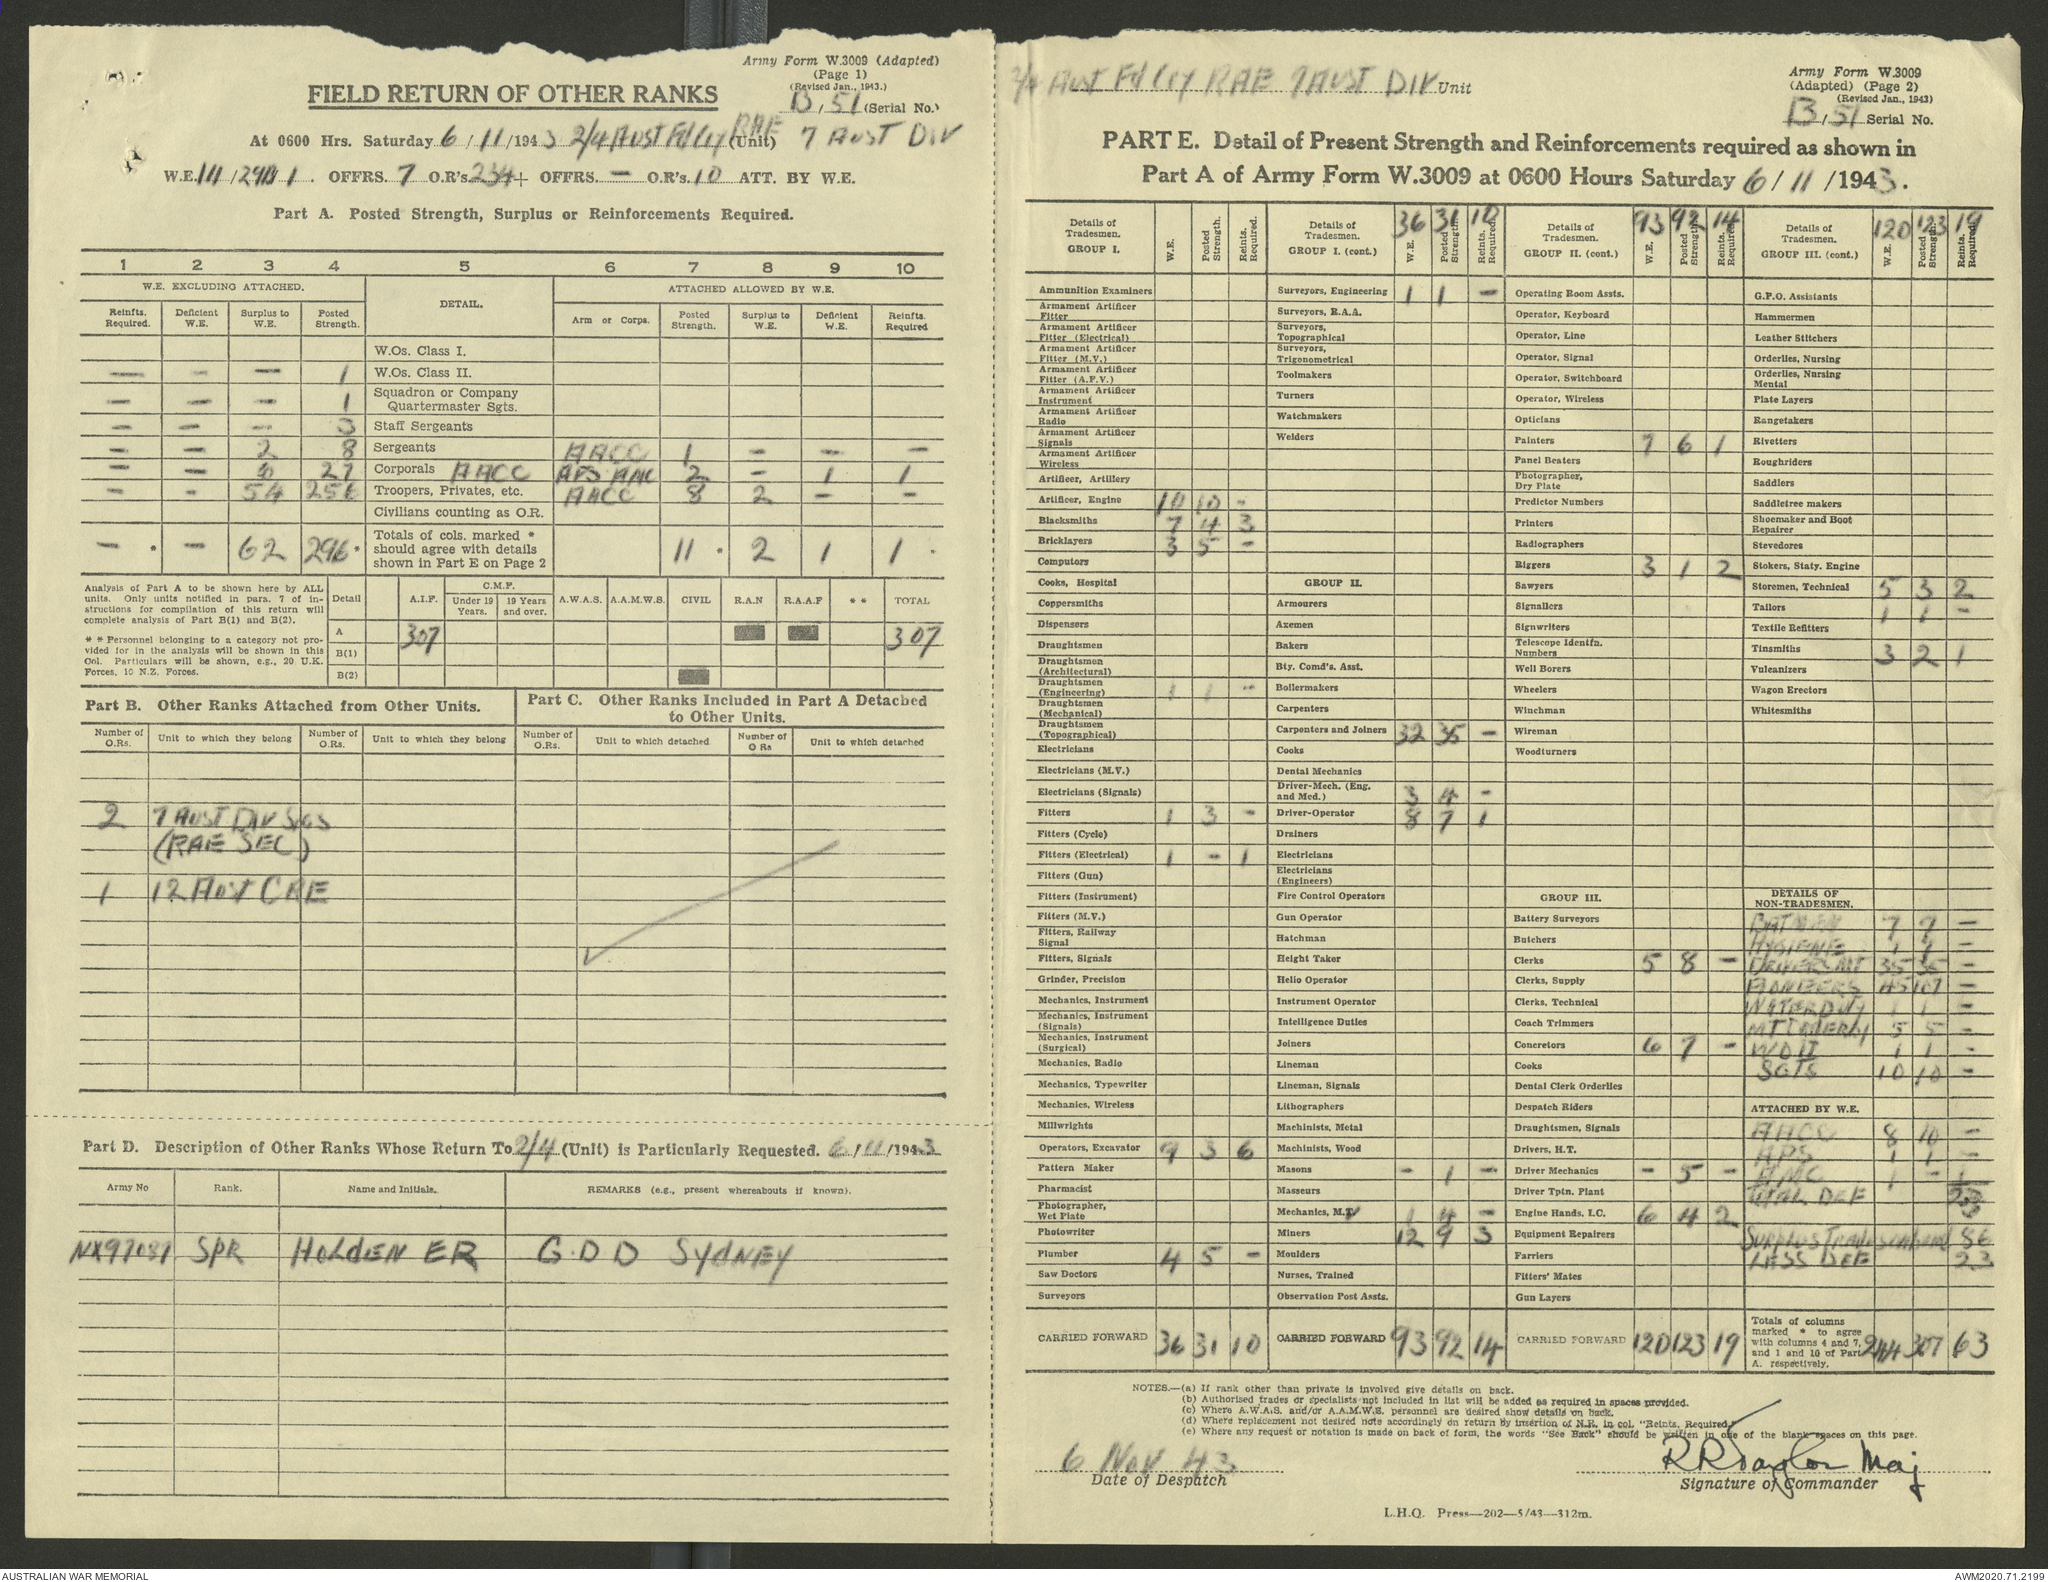 Army Form W.3009 (Adapted)
(Page 1)
(Revised Jan., 1943.)
FIELD RETURN OF OTHER RANKS
B/51 (Serial No.)
At 0600 Hrs. Saturday 6/11/1943 2/4 AUST Fd Coy RAE (Unit) 7 AUST DIV
W.E. III/29B/1. OFFRS. 7 O.R's. 234 + OFFRS. — O.R's. 10 ATT. BY W.E.
Part A. Posted Strength, Surplus or Reinforcements Required.
1 2 3 4 5 6 7 8 9 10
W.E. EXCLUDING ATTACHED. DETAIL. ATTACHED ALLOWED BY W.E.
Reinfts. Required. Deficient W.E. Surplus to W.E. Posted Strength. Arm or Corps. Posted Strength. Surplus to W.E. Deficient W.E. Reinfts. Required
W.Os. Class I.
— — — 1 W.Os. Class II.
— — — 1 Squadron or Company Quartermaster Sgts.
— — — 3 Staff Sergeants
— — 2 8 Sergeants AACC 1 — — —
— — 27 Corporals AACC APS AMC 2 — 1 1
- - 54 256 Troopers, Privates, etc. AACC 8 2 — —
Civilians counting as O.R.
— * — 62 296 * Totals of cols. marked * should agree with details shown in Part E on Page 2 11 * 2 1 1 *
Analysis of Part A to be shown here by ALL units. Only units notified in para. 7 of instructions for compilation of this return will complete analysis of Part B(1) and B(2).
* * Personnel belonging to a category not provided for in the analysis will be shown in this Col. Particulars will be shown, e.g., 20 U.K. Forces, 10 N.Z. Forces.
Detail A.I.F. C.M.F. Under 19 Years. 19 Years and over. A.W.A.S. A.A.M.W.S. CIVIL R.A.N R.A.A.F * * TOTAL
A 307 307
B(1)
B(2)
Part B. Other Ranks Attached from Other Units.
Part C. Other Ranks Included in Part A Detached to Other Units.
Number of O.Rs. Unit to which they belong Number of O.Rs. Unit to which they belong Number of O.Rs. Unit to which detached Number of O Rs Unit to which detached
2 7 AUST DIV SIGS
(RAE SEC)
1 12 AUST CRE
Part D. Description of Other Ranks Whose Return To 2/4 (Unit) is Particularly Requested. 6/11/1943
Army No Rank. Name and Initials. REMARKS (e.g., present whereabouts if known).
NX97087 SPR HOLDEN ER G.D.D SYDNEY
2/4 AUST Fd Coy RAE 7 AUST DIV Unit
Army Form W.3009
(Adapted) (Page 2)
(Revised Jan., 1943)
B/51 Serial No.
PART E. Detail of Present Strength and Reinforcements required as shown in
Part A of Army Form W.3009 at 0600 Hours Saturday 6/11/1943.
Details of Tradesmen. GROUP I. W.E. Posted Strength. Reints. Required.
Ammunition Examiners
Armament Artificer Fitter
Armament Artificer Fitter (Electrical)
Armament Artificer Fitter (M.V.)
Armament Artificer Fitter (A.F.V.)
Armament Artificer Instrument
Armament Artificer Radio
Armament Artificer Signals
Armament Artificer Wireless
Artificer, Artillery
Artificer, Engine 10 10 -
Blacksmiths 7 4 3
Bricklayers 3 5 -
Computors
Cooks, Hospital
Coppersmiths
Dispensers
Draughtsmen
Draughtsmen (Architectural)
Draughtsmen (Engineering) 1 1 -
Draughtsmen (Mechanical)
Draughtsmen (Topographical)
Electricians
Electricians (M.V.)
Electricians (Signals)
Fitters 1 3 -
Fitters (Cycle)
Fitters (Electrical) 1 - 1
Fitters (Gun)
Fitters (Instrument)
Fitters (M.V.)
Fitters, Railway Signal
Fitters, Signals
Grinder, Precision
Mechanics, Instrument
Mechanics, Instrument (Signals)
Mechanics, Instrument (Surgical)
Mechanics, Radio
Mechanics, Typewriter
Mechanics, Wireless
Millwrights
Operators, Excavator 9 3 6
Pattern Maker
Pharmacist
Photographer, Wet Plate
Photowriter
Plumber 4 5 -
Saw Doctors
Surveyors
CARRIED FORWARD 36 31 10
Details of Tradesmen. GROUP I. (cont.) 36 31 10 W.E. Posted Strength. Reints. Required.
Surveyors, Engineering 1 1 -
Surveyors, R.A.A.
Surveyors, Topographical
Surveyors, Trigonometrical
Toolmakers
Turners
Watchmakers
Welders
GROUP II.
Armourers
Axemen
Bakers
Bty. Comd's. Asst.
Boilermakers
Carpenters
Carpenters and Joiners 32 35 -
Cooks
Dental Mechanics
Driver-Mech. (Eng. and Med.) 3 4 -
Driver-Operator 8 7 1
Drainers
Electricians
Electricians (Engineers)
Fire Control Operators
Gun Operator
Hatchman
Height Taker
Helio Operator
Instrument Operator
Intelligence Duties
Joiners
Lineman
Lineman, Signals
Lithographers
Machinists, Metal
Machinists, Wood
Masons - 1 -
Masseurs
Mechanics, M.V 1 4 -
Miners 12 9 3
Moulders
Nurses, Trained
Observation Post Assts.
CARRIED FORWARD 93 92 14
Details of Tradesmen. GROUP II. (cont.) 93 92 14 W.E. Posted Strength. Reints. Required.
Operating Room Assts.
Operator, Keyboard
Operator, Line
Operator, Signal
Operator, Switchboard
Operator, Wireless
Opticians
Painters 7 6 1
Panel Beaters
Photographer, Dry Plate
Predictor Numbers
Printers
Radiographers
Riggers 3 1 2
Sawyers
Signallers
Signwriters
Telescope Identfn. Numbers
Well Borers
Wheelers
Winchman
Wireman
Woodturners
GROUP III.
Battery Surveyors
Butchers
Clerks 5 8 -
Clerks, Supply
Clerks, Technical
Coach Trimmers
Concretors 6 7 -
Cooks
Dental Clerk Orderlies
Despatch Riders
Draughtsmen, Signals
Drivers, H.T.
Driver Mechanics - 5 -
Driver Tptn. Plant
Engine Hands, I.C. 6 4 2
Equipment Repairers
Farriers
Fitters' Mates
Gun Layers
CARRIED FORWARD 120 123 19
Details of Tradesmen. GROUP III. (cont.) 120 123 19 W.E. Posted Strength. Reints. Required.
G.P.O. Assistants
Hammermen
Leather Stitchers
Orderlies, Nursing
Orderlies, Nursing Mental
Plate Layers
Rangetakers
Rivetters
Roughriders
Saddlers
Saddletree makers
Shoemaker and Boot Repairer
Stevedores
Stokers, Staty. Engine
Storemen, Technical 5 3 2
Tailors 1 1 -
Textile Refitters
Tinsmiths 3 2 1
Vulcanizers
Wagon Erectors
Whitesmiths
DETAILS OF NON-TRADESMEN.
BATMEN 7 9 -
HYGIENE 1 1 -
DRIVERS MT 35 35 -
PIONEERS 45 107 -
WATER DUTY 1 1 -
5 5 -
WO II 1 1 -
SGTS 10 10 -
ATTACHED BY W.E.
AACC 8 10 -
APS 1 1 -
AMC 1 - 1
TOTAL DEF 23
SURPLUS 86
LESS DEF 23
Totals of columns marked * to agree with columns 4 and 7, and 1 and 10 of Part A. respectively. 244 307 63
NOTES.—(a) If rank other than private is involved give details on back.
(b) Authorised trades or specialists not included in list will be added as required in spaces provided.
(c) Where A.W.A.S. and/or A.A.M.W.S. personnel are desired show details on back.
(d) Where replacement not desired note accordingly on return by insertion of N.R. in col. "Reints. Required."
(e) Where any request or notation is made on back of form, the words "See Back" should be written in one of the blank spaces on this page.
6 Nov 43
Date of Despatch
RR Taylor Maj
Signature of Commander
L.H.Q. Press—202—5/43—312m.
AUSTRALIAN WAR MEMORIAL
AWM2020.71.2199